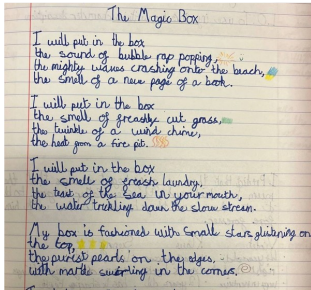 The Magic Box
I will put in the box
the sound of bubble rap popping,
the mighty waves crashing onto the beach,
the smell of a new page of a book.
I will put in the box
the smell of freashly cut grass,
the twinkle of a wind chime,
the heat from a fire pit.
I will put in the box
the smell of freash laundry,
the taist of the sea in your mouth,
the water trickling down the slow stream.
My box is fashioned with small stars glistening on
the top,
the purest pearls on the edges,
with marble swirling in the corners,